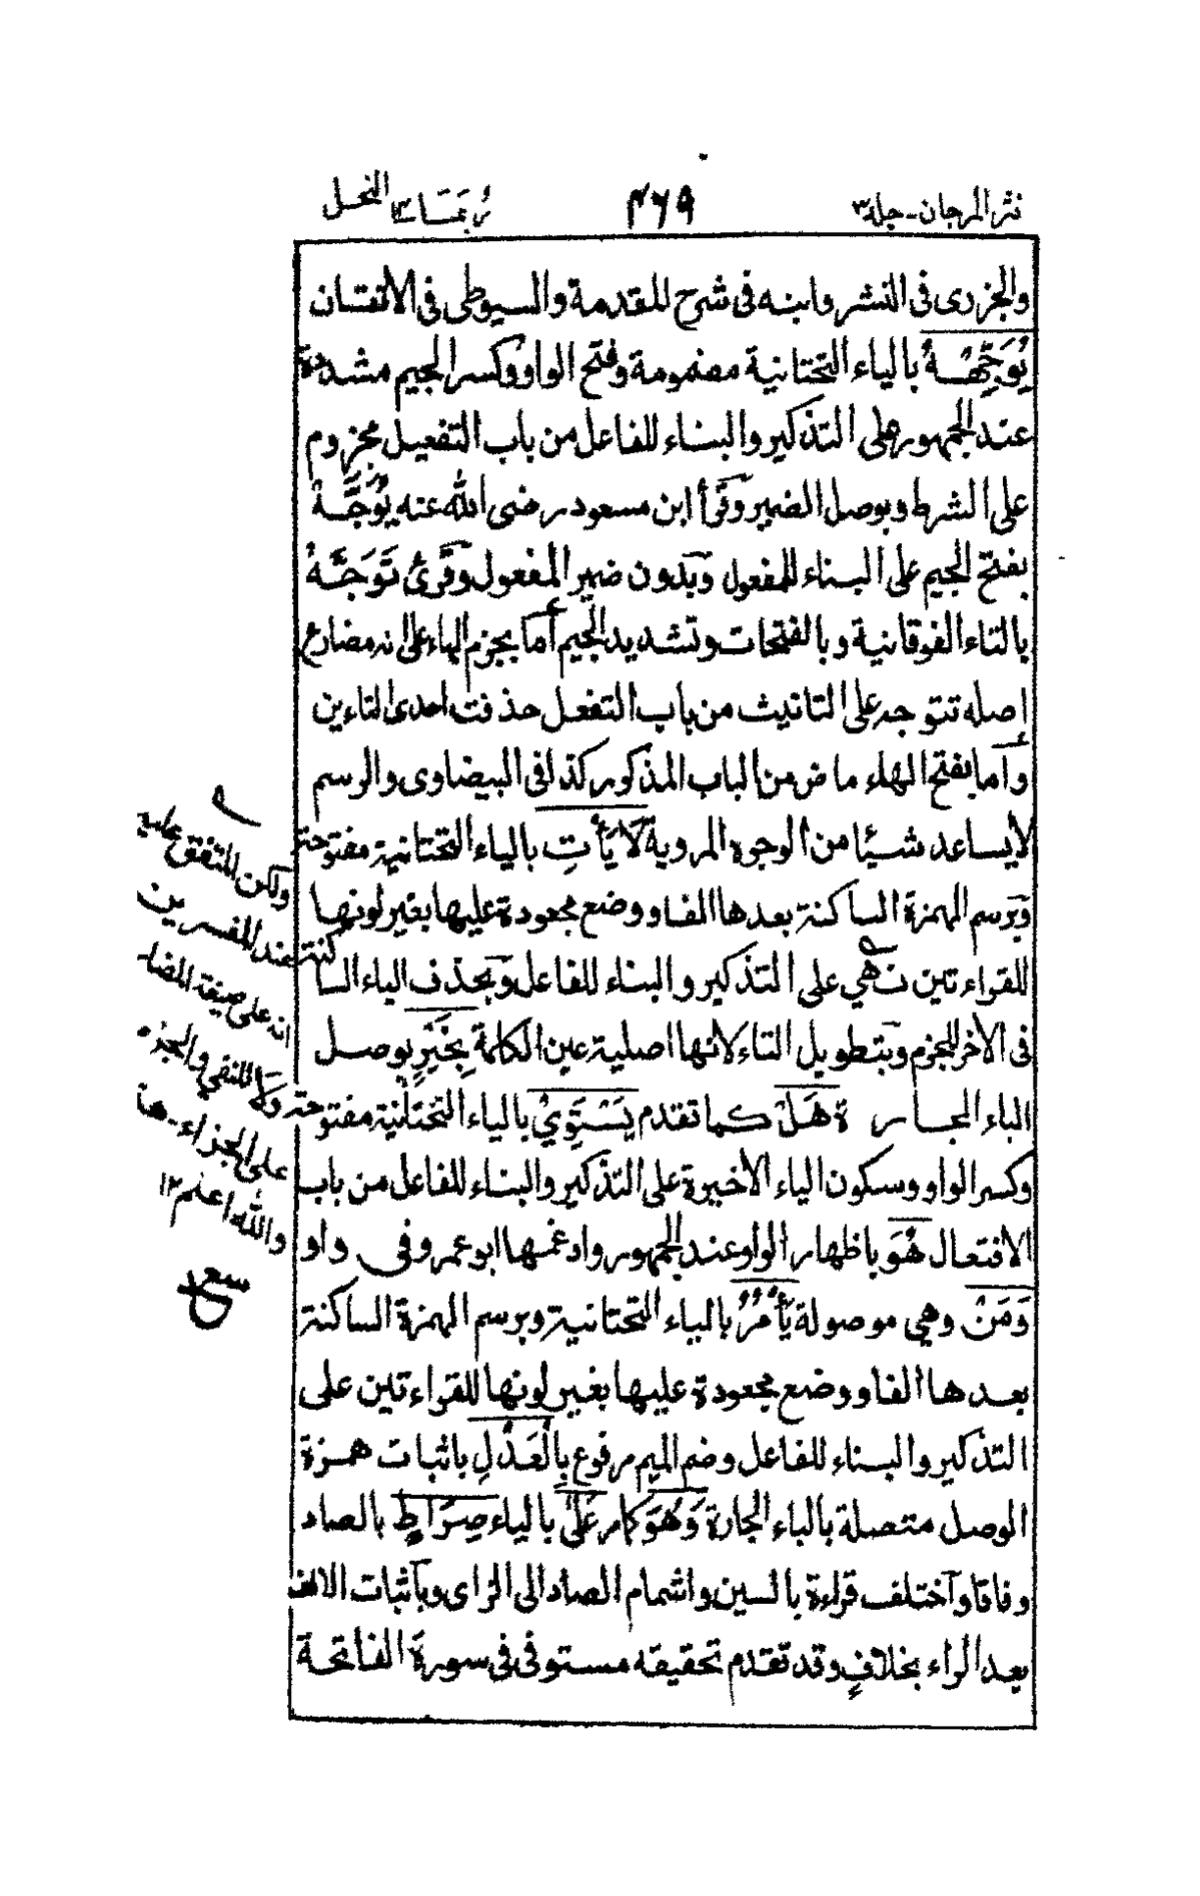 نثر المرجان - جلد ٣
٤٦٩
ربما ١٤ النحل
والجزرى فى النشر وابنه فى شرح المقدمة والسيوطى فى الاتقان
يُوَجِّهْهُ بالياء التحتانية مضمومة وفتح الواو وكسر الجيم مشددة
عند الجمهور على التذكير والبناء للفاعل من باب التفعيل مجزوم
على الشرط وبوصل الضمير وقرأ ابن مسعود رضى الله عنه يُوَجَّهْ
بفتح الجيم على البناء للمفعول وبدون ضمير المفعول وقرئ تَوَجَّهْ
بالتاء الفوقانية وبالفتحات وتشديد الجيم أما بجزم الهاء على انه مضارع
اصله تتوجه على التانيث من باب التفعل حذفت احدى التاءين
وأما بفتح الهاء ماض من الباب المذكور كذا فى البيضاوى والرسم
لايساعد شيئا من الوجوه المروية لَا يَأْتِ بالياء التحتانية مفتوحة
وبرسم الهمزة الساكنة بعدها الفا ووضع مجعودة عليها بغير لونها
للقراءتين نهي على التذكير والبناء للفاعل وبحذف الياء الساكنة
فى الآخر للجزم وبتطويل التاء لانها اصلية عين الكلمة بِخَيْرٍ بوصل
الباء الجارة هَلْ كما تقدم يَسْتَوِيْ بالياء التحتانية مفتوحة
وكسر الواو وسكون الياء الأخيرة على التذكير والبناء للفاعل من باب
الافتعال هُوَ باظهار الواو عند الجمهور وادغمها ابو عمرو فى واو
وَمَنْ وهي موصولة يَأْمُرُ بالياء التحتانية وبرسم الهمزة الساكنة
بعدها الفا ووضع مجعودة عليها بغير لونها للقراءتين على
التذكير والبناء للفاعل وضم الميم مرفوع بِالْعَدْلِ باثبات همزة
الوصل متصلة بالباء الجارة وَهُوَ كما مر عَلٰى بالياء صِرَاطٍ بالصاد
وفاقا واختلف قراءة بالسين واشمام الصاد الى الزاى وباثبات الالف
بعد الراء بخلافٍ وقد تقدم تحقيقه مستوفى فى سورة الفاتحة
ولكن المتفق عليه
عند المفسرين
انه على صيغة المضا
ولا للنفي والجزم
على الجزاء - هذا
والله اعلم ١٢